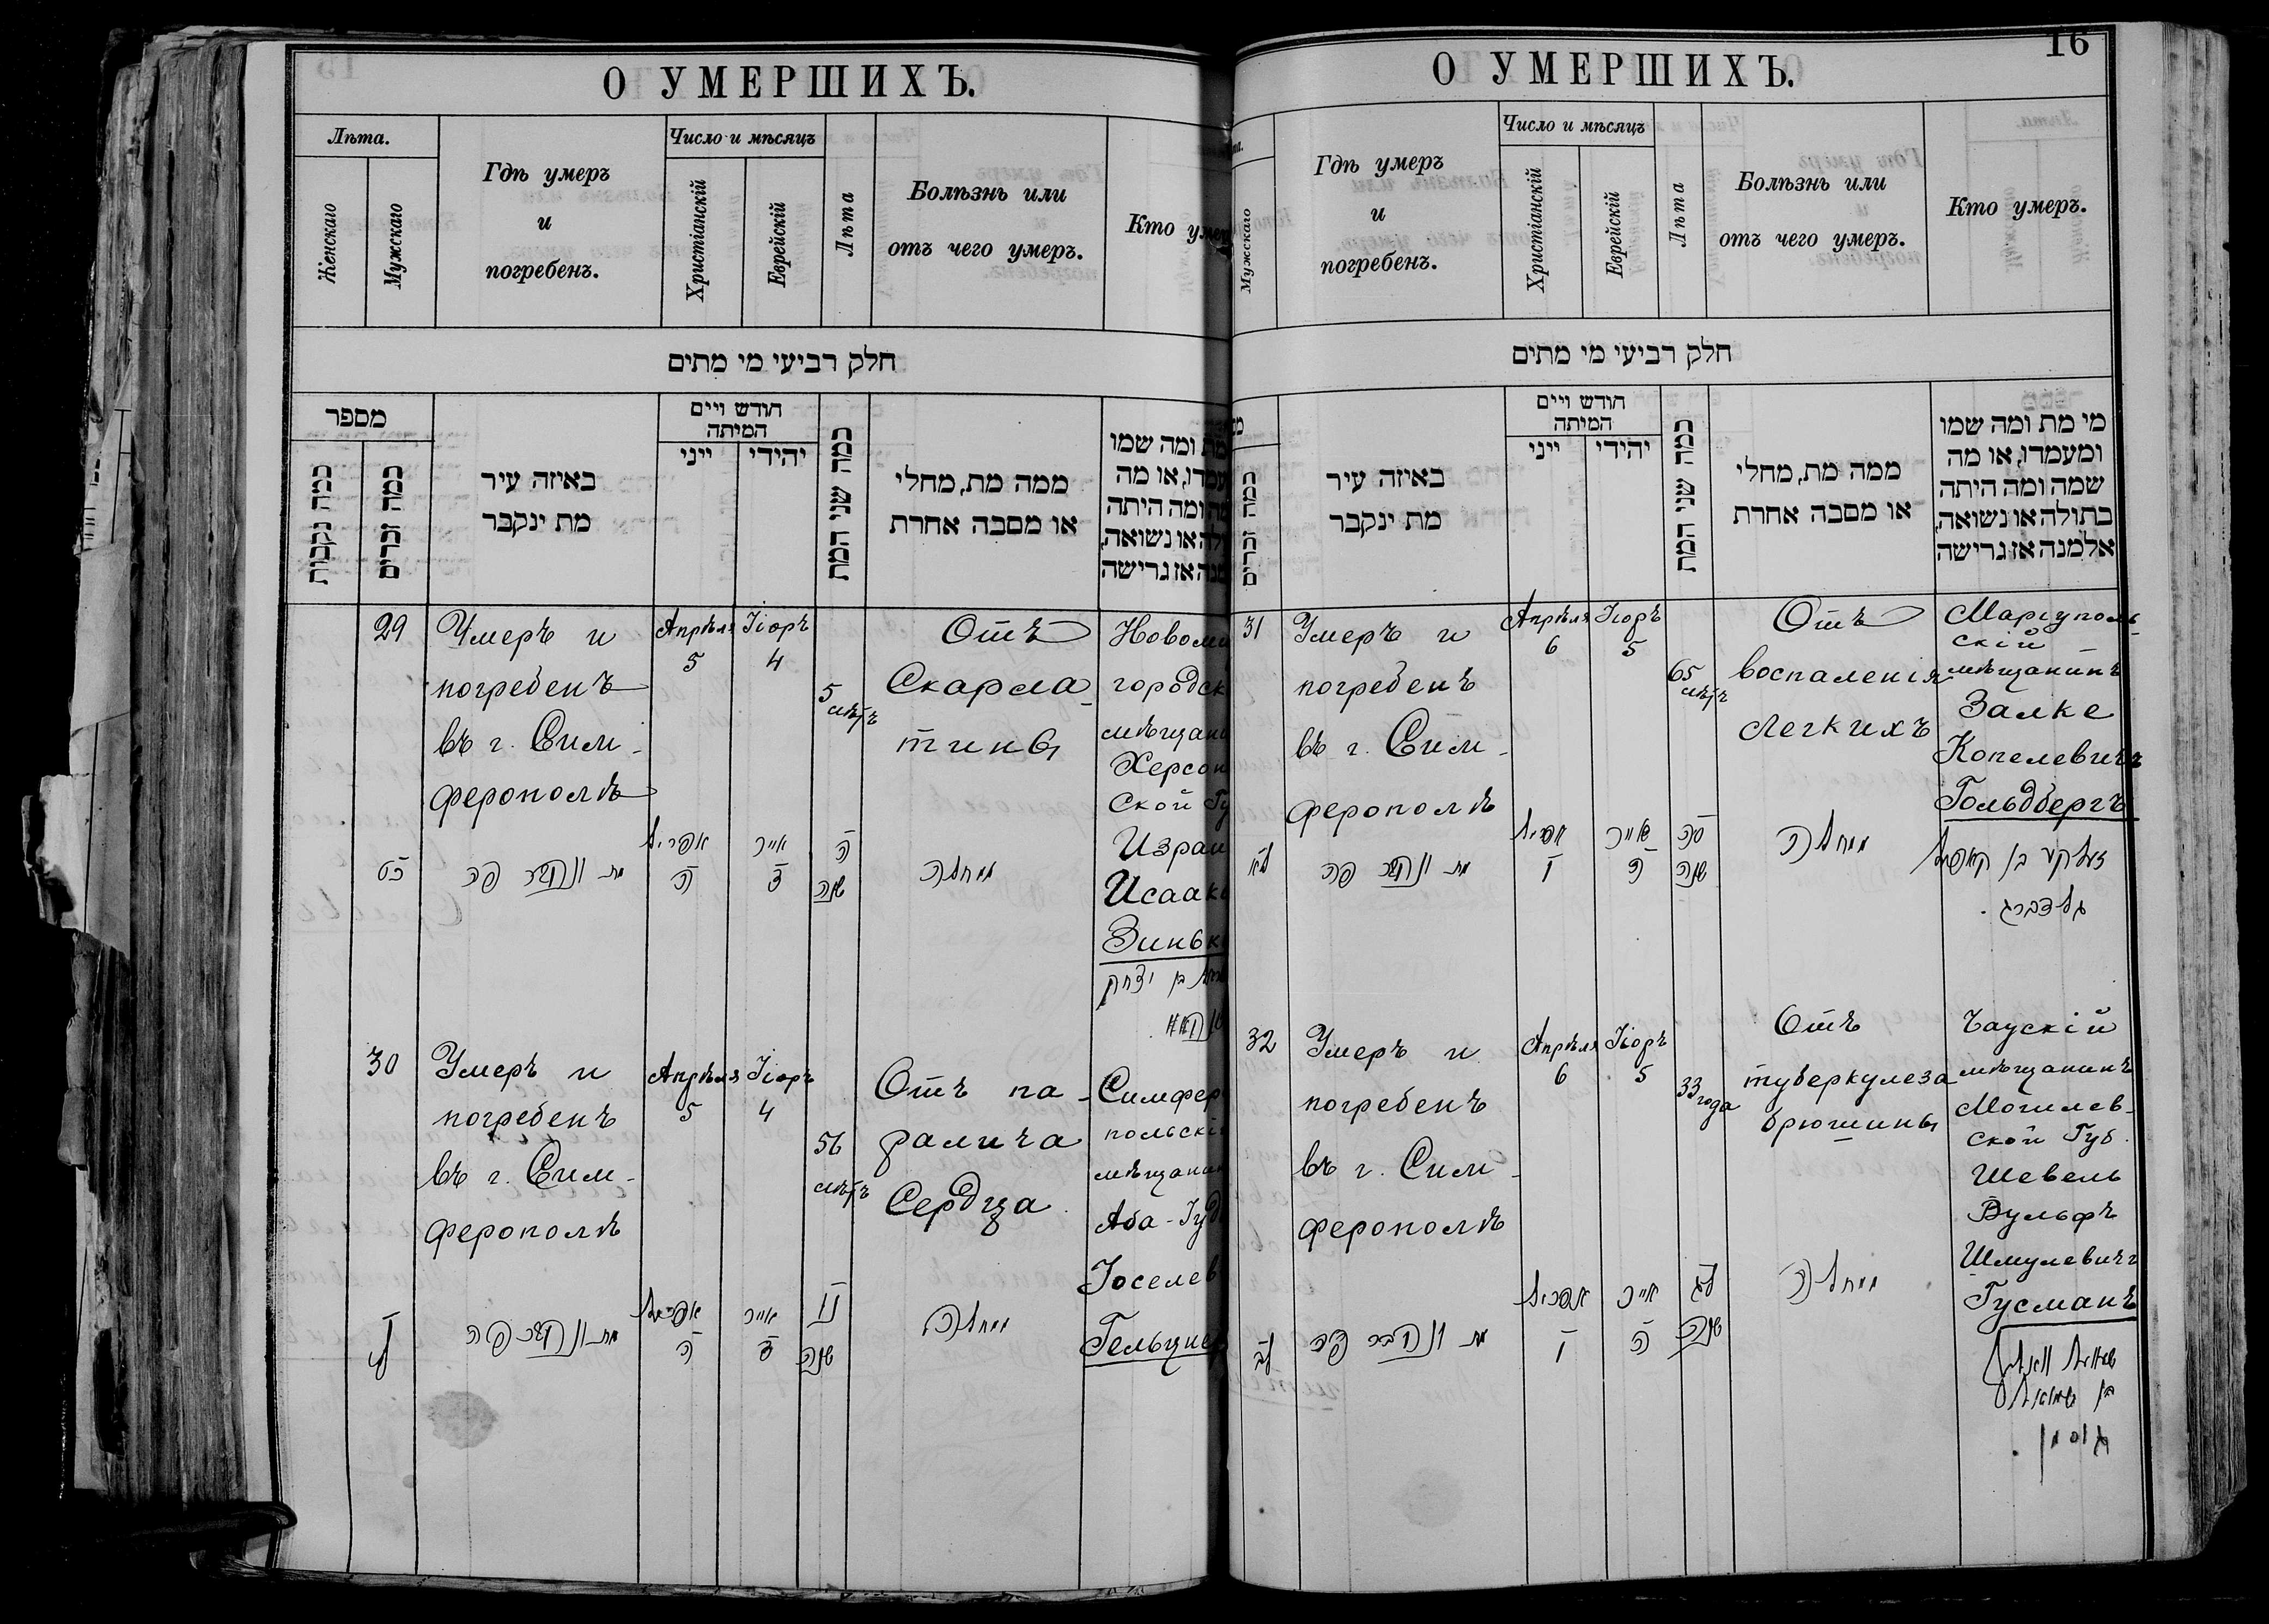 О УМЕРШИХЪ.
Лѣта.
Женскаго
Мужскаго
Гдѣ умеръ
и
погребенъ.
Число и мѣсяцъ
Христіанскій
Еврейскій
Лѣта
Болѣзнь или
отъ чего умеръ.
Кто умер
חלק רביעי מי מתים
מספר
כמה נקבות
כמה זכרים
באיזה עיר
מת ינקבר
חודש ויים
המיתה
ייני
יהידי
כמה שני המת
ממה מת, מחלי
או מסבה אחרת
מת ומה שמו
עמדו, או מה
ומה היתה
לה או נשואה,
מנה אז גרישה
29
Умеръ и
погребенъ
въ г. Сим-
ферополѣ
Апрѣля
5
Іюръ
4
5
лѣтъ
Отъ
Скарла-
тины
Новоми
городск
мѣщани
Херсон
ской Гу
Израи
Исаак
Зиньк
כט
מת ונקבר פה
אפריל
ה
אייר
ד
ה
שנה
מחלה
בן יצחק
30
Умеръ и
погребенъ
въ г. Сим-
ферополѣ
Апрѣля
5
Іюръ
4
56
лѣтъ
Отъ па-
ралича
Сердца
Симфер
польскі
мѣщанин
Аба-Іуд
Іоселев
Гельцер
ל
מת ונקבר פה
אפריל
ה
אייר
ד
נו
שנה
מחלה
16
О УМЕРШИХЪ.
Мужскаго
Гдѣ умеръ
и
погребенъ.
Число и мѣсяцъ
Христіанскій
Еврейскій
Лѣта
Болѣзнь или
отъ чего умеръ.
Кто умеръ.
חלק רביעי מי מתים
כמה זכרים
באיזה עיר
מת ינקבר
חודש ויים
המיתה
ייני
יהידי
כמה שני המת
ממה מת, מחלי
או מסבה אחרת
מי מת ומה שמו
ומעמדו, או מה
שמה ומה היתה
בתולה או נשואה,
אלמנה אז גרישה
31
Умеръ и
погребенъ
въ г. Сим-
ферополѣ
Апрѣля
6
Іюръ
5
65
лѣтъ
Отъ
воспаленія
легкихъ
Маріуполь-
скій
мѣщанинъ
Залке
Копелевичъ
Гольдбергъ
לא
מת ונקבר פה
אפריל
ו
אייר
ה
סה
שנה
מחלה
זעלקע בן קאפיל
גלדברג.
32
Умеръ и
погребенъ
въ г. Сим-
ферополѣ
Апрѣля
6
Іюръ
5
33
года
Отъ
туберкулеза
брюшины
Чаускій
мѣщанинъ
Могилев-
ской Губ.
Шевель
Вульфъ
Шмулевичъ
Гусманъ
לב
מת ונקבר פה
אפריל
ו
אייר
ה
לג
שנה
מחלה
בן שמואל
גוסמן.